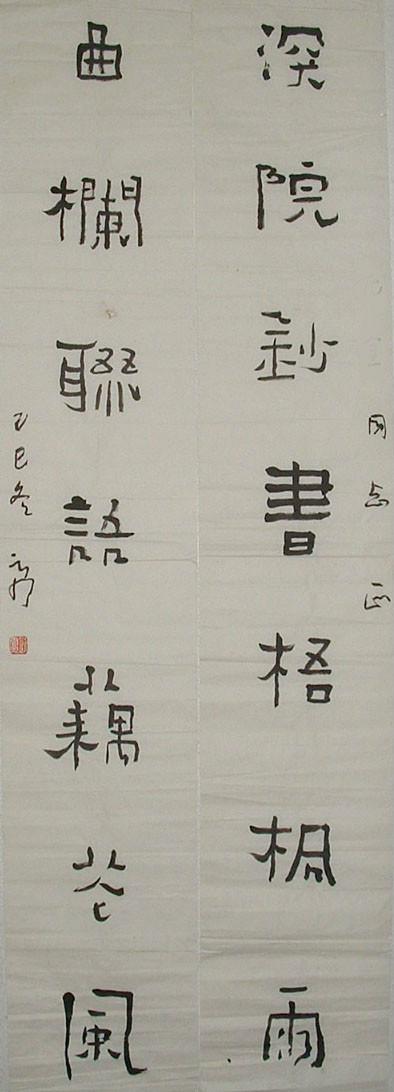 志 正
深院鈔書梧桐雨
曲欄聯語藕花風
乙巳冬